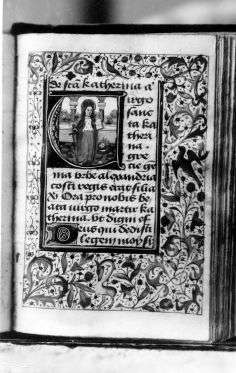 de sca katherina a
Virgo
sanc
ta ka
theri
na
gre
cie ge
ma vrbe alexandria
costi regis erat filia
Ora pro nobis be
ata virgo martir ka
therina. Vt digni ef
Deus qui dedisti
legem moysi